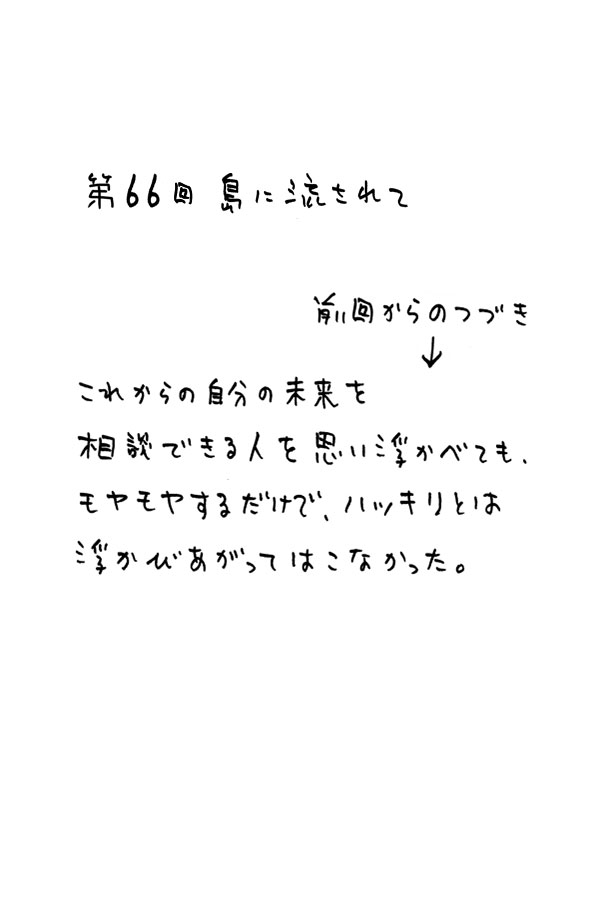 第66回 島に流されて
前回からのつづき
↓
これからの自分の未来を
相談できる人を思い浮かべても、
モヤモヤするだけで、ハッキリとは
浮かびあがってはこなかった。